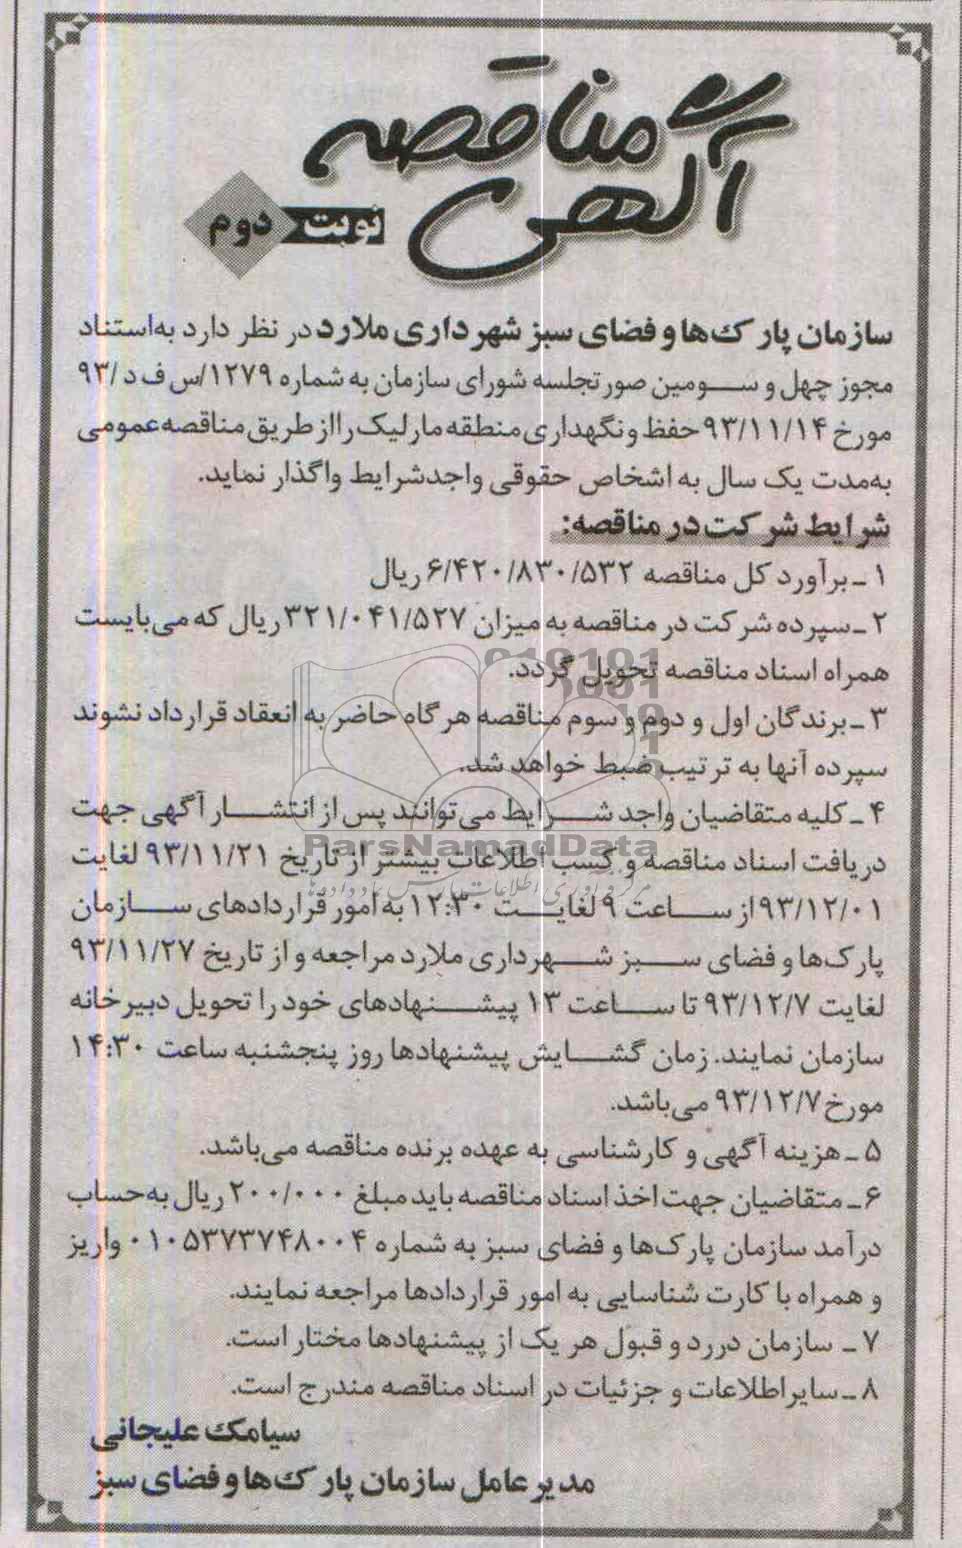 آگهی مناقصه
نوبت دوم
سازمان پارک‌ها و فضای سبز شهرداری ملارد در نظر دارد به‌استناد
مجوز چهل و سومین صورتجلسه شورای سازمان به شماره ۱۲۷۹/س ف د /۹۳
مورخ ۹۳/۱۱/۱۴ حفظ و نگهداری منطقه مارلیک را از طریق مناقصه عمومی
به‌مدت یک سال به اشخاص حقوقی واجدشرایط واگذار نماید.
شرایط شرکت در مناقصه:
۱ ـ برآورد کل مناقصه ۶/۴۲۰/۸۳۰/۵۳۲ ریال
۲ ـ سپرده شرکت در مناقصه به میزان ۳۲۱/۰۴۱/۵۲۷ ریال که می‌بایست
همراه اسناد مناقصه تحویل گردد.
۳ ـ برندگان اول و دوم و سوم مناقصه هرگاه حاضر به انعقاد قرارداد نشوند
سپرده آنها به ترتیب ضبط خواهد شد.
۴ ـ کلیه متقاضیان واجد شرایط می‌توانند پس از انتشار آگهی جهت
دریافت اسناد مناقصه و کسب اطلاعات بیشتر از تاریخ ۹۳/۱۱/۲۱ لغایت
ParsNamadData
۹۳/۱۲/۰۱ از ساعت ۹ لغایت ۱۲:۳۰ به امور قراردادهای سازمان
پارک‌ها و فضای سبز شهرداری ملارد مراجعه و از تاریخ ۹۳/۱۱/۲۷
لغایت ۹۳/۱۲/۷ تا ساعت ۱۳ پیشنهادهای خود را تحویل دبیرخانه
سازمان نمایند. زمان گشایش پیشنهادها روز پنجشنبه ساعت ۱۴:۳۰
مورخ ۹۳/۱۲/۷ می‌باشد.
۵ ـ هزینه آگهی و کارشناسی به عهده برنده مناقصه می‌باشد.
۶ ـ متقاضیان جهت اخذ اسناد مناقصه باید مبلغ ۲۰۰/۰۰۰ ریال به‌حساب
درآمد سازمان پارک‌ها و فضای سبز به شماره ۰۱۰۵۳۷۳۷۴۸۰۰۴ واریز
و همراه با کارت شناسایی به امور قراردادها مراجعه نمایند.
۷ ـ سازمان در رد و قبول هر یک از پیشنهادها مختار است.
۸ ـ سایر اطلاعات و جزئیات در اسناد مناقصه مندرج است.
سیامک علیجانی
مدیر عامل سازمان پارک‌ها و فضای سبز